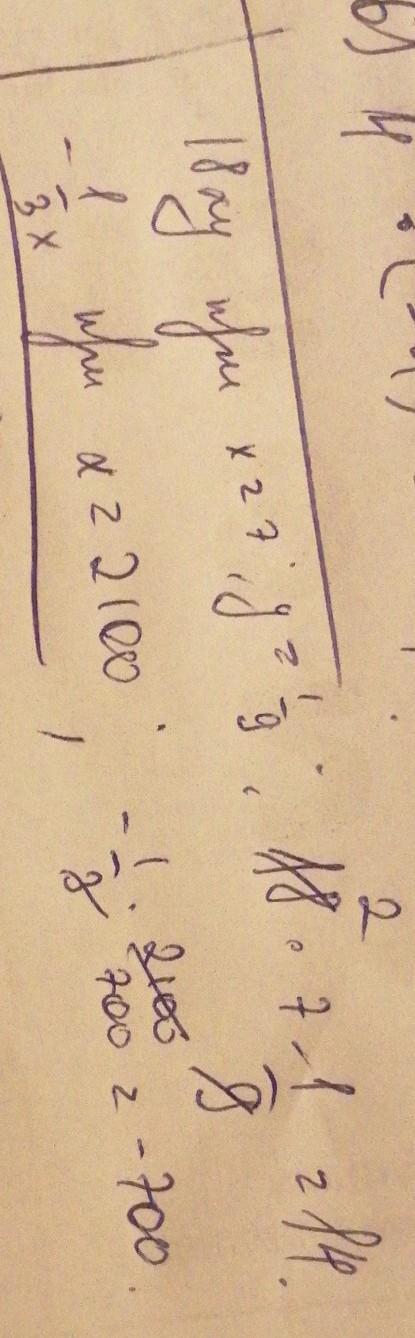 18xy при x = 7; y = 1/9; 18 · 7 · 1/9 = 14.
- 1/3 x при x = 2100; - 1/3 · 2100 700 = -700.